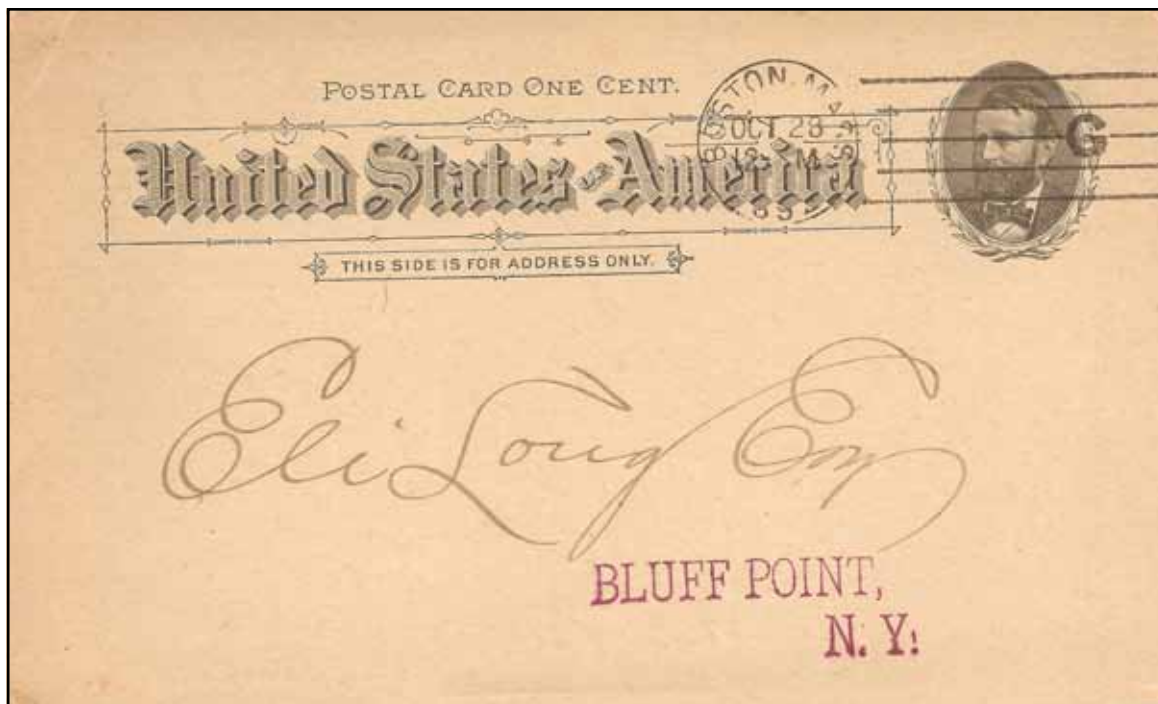 POSTAL CARD ONE CENT.
United States of America
THIS SIDE IS FOR ADDRESS ONLY.
BOSTON. MASS
OCT 28
G
Eli Long Esq
BLUFF POINT,
N. Y.